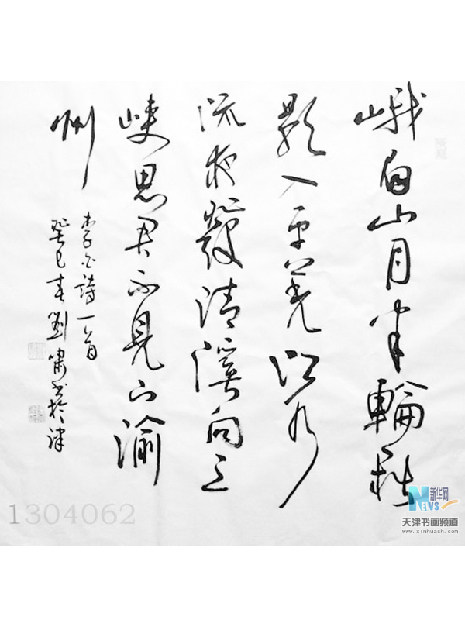 峨眉山月半輪秋
影入平羌江水
流夜發清溪向三
峽思君不見下渝
州
李白詩一首
癸巳春劉書於津
1304062
新华网
NEWS
天津书画频道